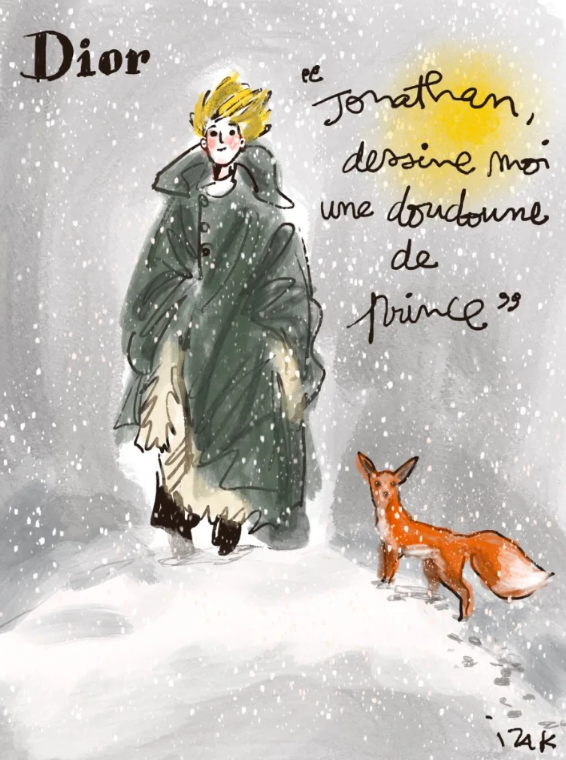 Dior
“Jonathan,
dessine moi
une doudoune
de
prince”
izak